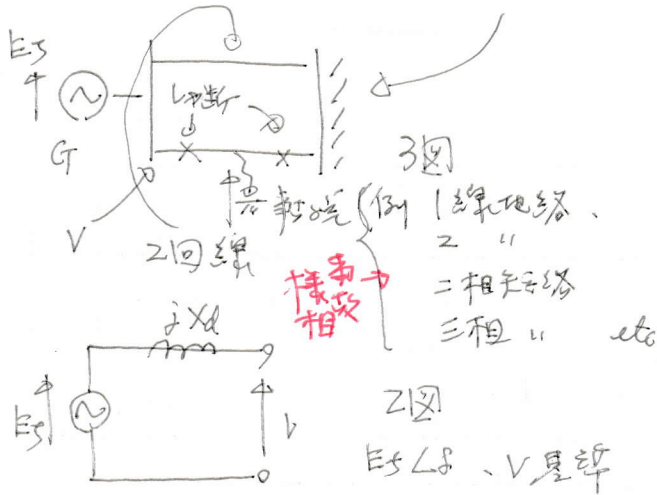 Ef
G
V
しゃ断
2回線
3図
例 1線地絡、
2 〃
二相短絡
三相 〃 etc
事故
様相
jXd
Ef
V
2図
Ef∠δ、V基準